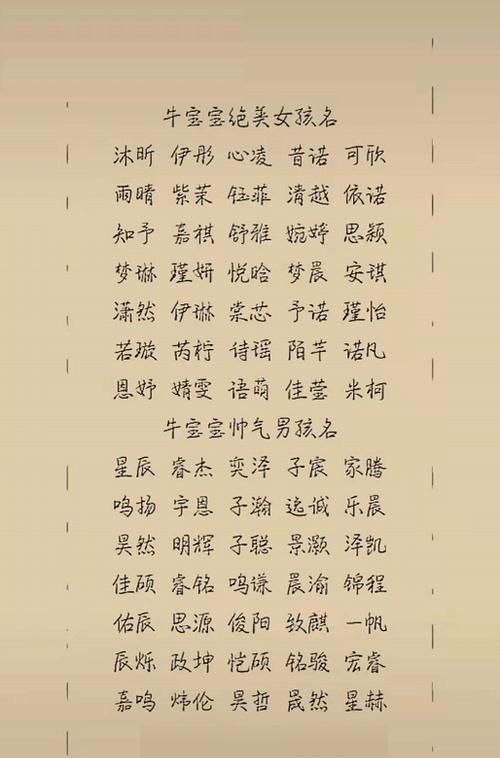 牛宝宝绝美女孩名
沐昕 伊彤 心凌 昔诺 可欣
雨晴 紫茉 钰菲 清越 依诺
知予 嘉祺 舒雅 婉婷 思颖
梦琳 瑾妍 悦晗 梦晨 安琪
潇然 伊琳 棠芯 予诺 瑾怡
若璇 芮柠 诗瑶 陌芊 诺凡
恩妤 婧雯 语萌 佳莹 米柯
牛宝宝帅气男孩名
星辰 睿杰 奕泽 子宸 家腾
鸣扬 宇恩 子瀚 逸诚 乐晨
昊然 明辉 子聪 景灏 泽凯
佳硕 睿铭 鸣谦 晨渝 锦程
佑辰 思源 俊阳 致麒 一帆
辰烁 政坤 恺硕 铭骏 宏睿
嘉鸣 炜伦 昊哲 晟然 星赫